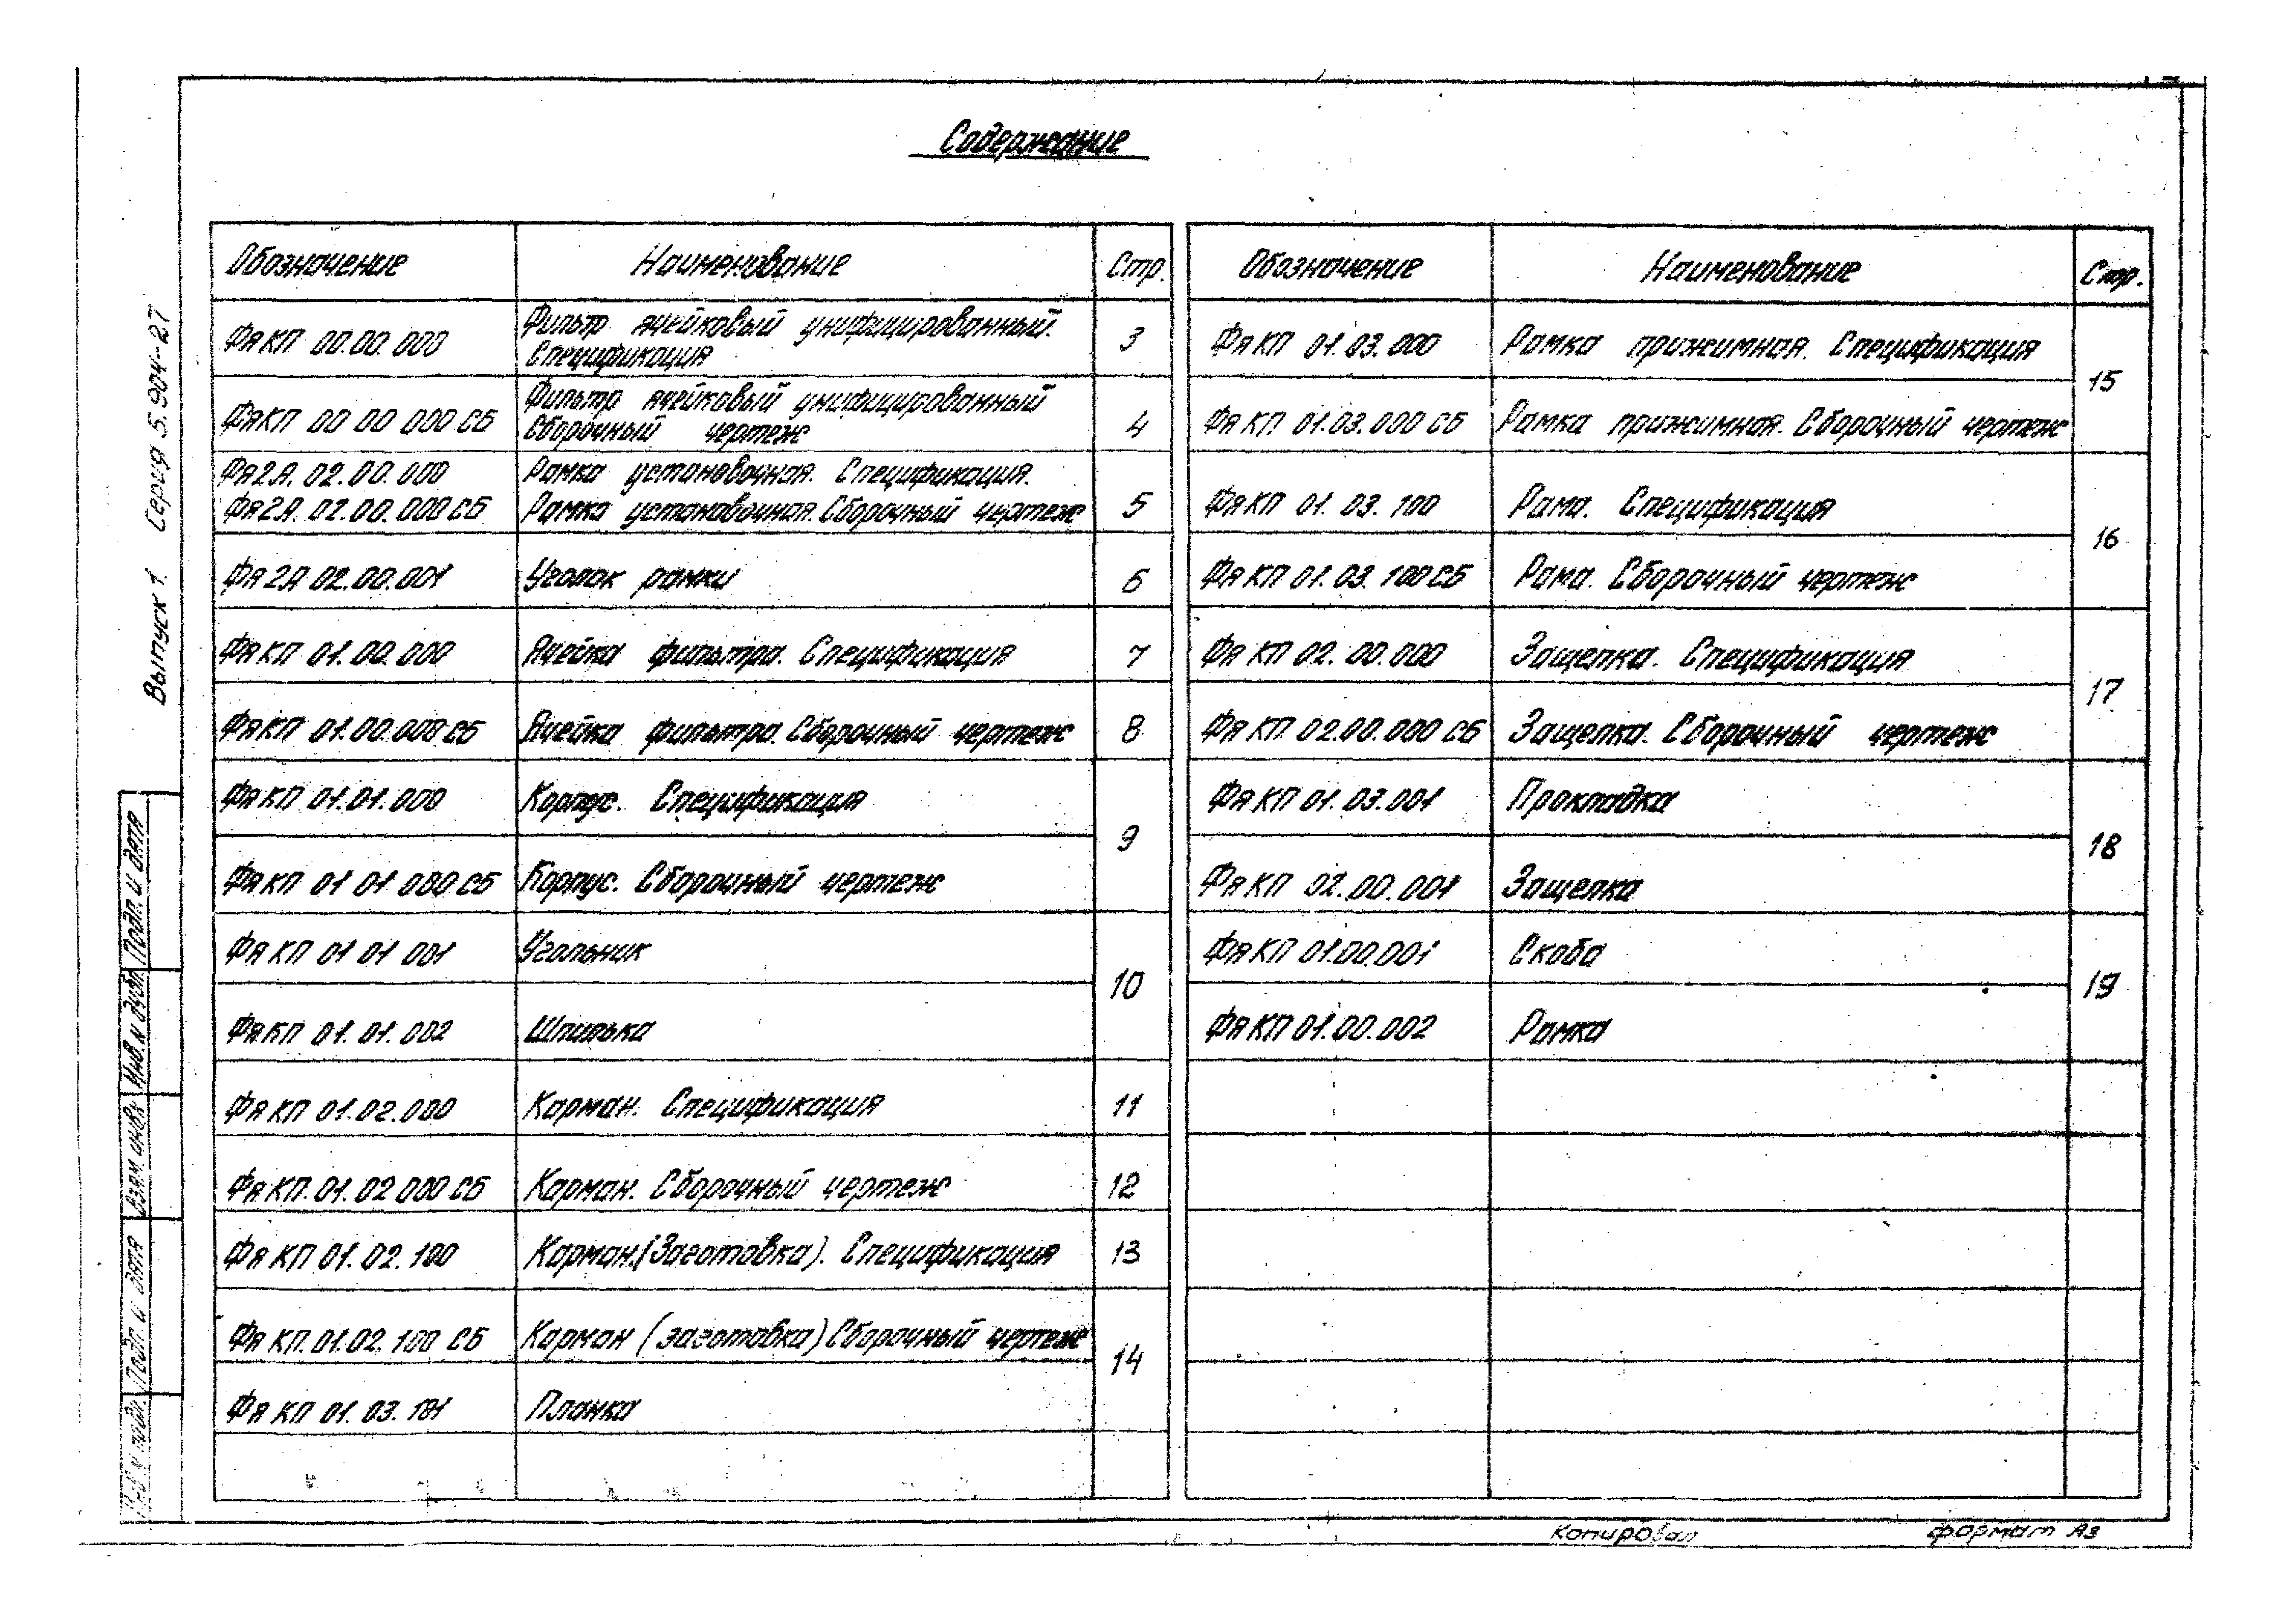 Содержание
Обозначение Наименование Стр.
ФяКП 00.00.000 Фильтр ячейковый унифицированный. Спецификация 3
ФяКП 00 00 000 СБ Фильтр ячейковый унифицированный Сборочный чертеж 4
Фя2А. 02.00.000 Рамка установочная. Спецификация.
Фя2А. 02.00.000 СБ Рамка установочная. Сборочный чертеж 5
Фя 2А 02.00.001 Уголок рамки 6
ФяКП 01.00.000 Ячейка фильтра. Спецификация 7
ФяКП 01.00.000 СБ Ячейка фильтра. Сборочный чертеж 8
ФяКП 01.01.000 Корпус. Спецификация
9
ФяКП 01 01 000 СБ Корпус. Сборочный чертеж
ФяКП 01 01 001 Угольник
10
ФяКП 01.01.002 Шпилька
ФяКП 01.02.000 Карман. Спецификация 11
ФяКП.01.02 000 СБ Карман. Сборочный чертеж 12
ФяКП 01.02.100 Карман.(Заготовка). Спецификация 13
ФяКП.01.02.100 СБ Карман (заготовка) Сборочный чертеж
14
ФяКП 01.03.101 Планка
Обозначение Наименование Стр.
ФяКП 01.03.000 Рамка прижимная. Спецификация
15
ФяКП 01.03.000 СБ Рамка прижимная. Сборочный чертеж
ФяКП 01.03.100 Рама. Спецификация
16
ФяКП 01.03.100 СБ Рама. Сборочный чертеж
ФяКП 02.00.000 Защелка. Спецификация
17
ФяКП 02.00.000 СБ Защелка. Сборочный чертеж
ФяКП 01.03.001 Прокладка
18
ФяКП 02.00.001 Защелка
ФяКП 01.00.001 Скоба
19
ФяКП 01.00.002 Рамка
Выпуск 1. Серия 5.904-27
Подп. и дата
Инв. н дубл.
Взам. инв. н
Подп. и дата
Копировал формат А3